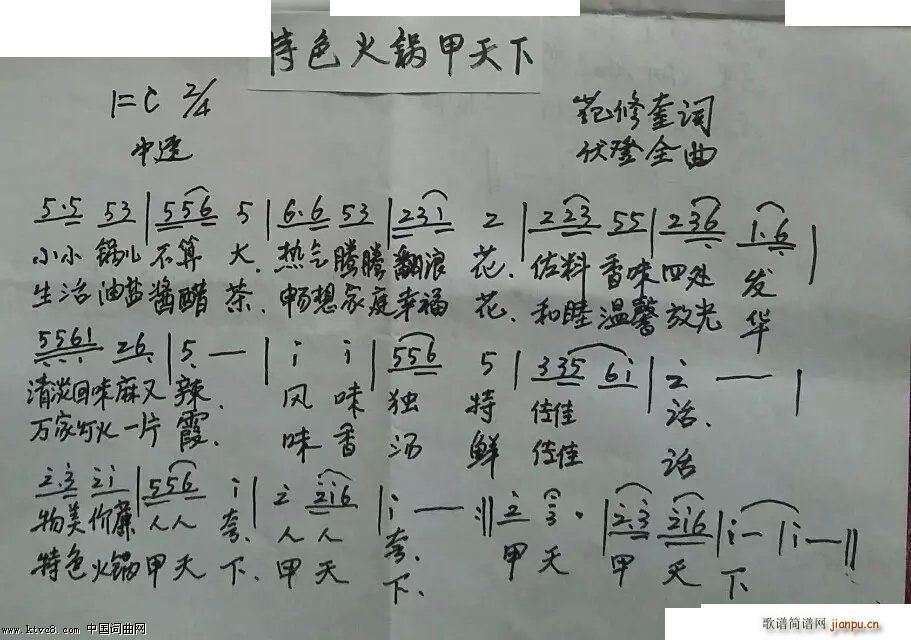 特色火锅甲天下
1=C 2/4
中速
范修奎词
伏登全曲
5·5 53 | 556 5 | 6·6 53 | 231 2 | 223 55 | 236 1·6 |
小小 锅儿 不算 大、热气 腾腾 翻浪 花、佐料 香味 四处 发
生活 油盐 酱醋 茶、畅想 家庭 幸福 花、和睦 温馨 放光 华
5561 26 | 5 — | i i | 556 5 | 335 6i | 2 — |
清淡回味 麻又 辣、风 味 独 特 佳佳 话、
万家灯火 一片 霞、味 香 汤 鲜 佳佳 话
2·3 2i | 556 i | 2 2i6 | i — :|| 2 3· | 2·3 2i6 | i — | i — ||
物美 价廉 人人 夸、人 人 夸、甲 天 甲 天 下
特色 火锅 甲天 下、甲 天 下、
www.ktvc8.com 中国词曲网
歌谱简谱网
jianpu.cn